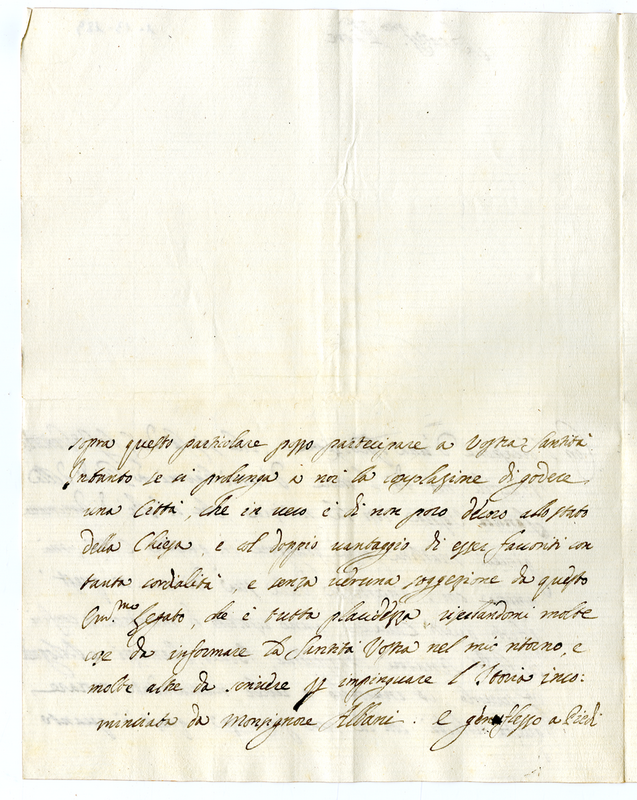 sopra questo particolare posso partecipare a Vostra Santità
Intanto se ci prolunga à noi la consolazione di godere
una Città, che in vero è di non poco decoro allo stato
della Chiesa, e col doppio vantaggio di esser favoriti con
tanta cordialità, e senza veruna soggezione da questo
Em.mo Legato, che è tutto placidezza, riserbandomi molte
cose da informare la Santità Vostra nel mio ritorno, e
molte altre da scrivere p impinguare l'Istoria inco:
minciata da Monsignore Albani. e genuflesso a Piedi